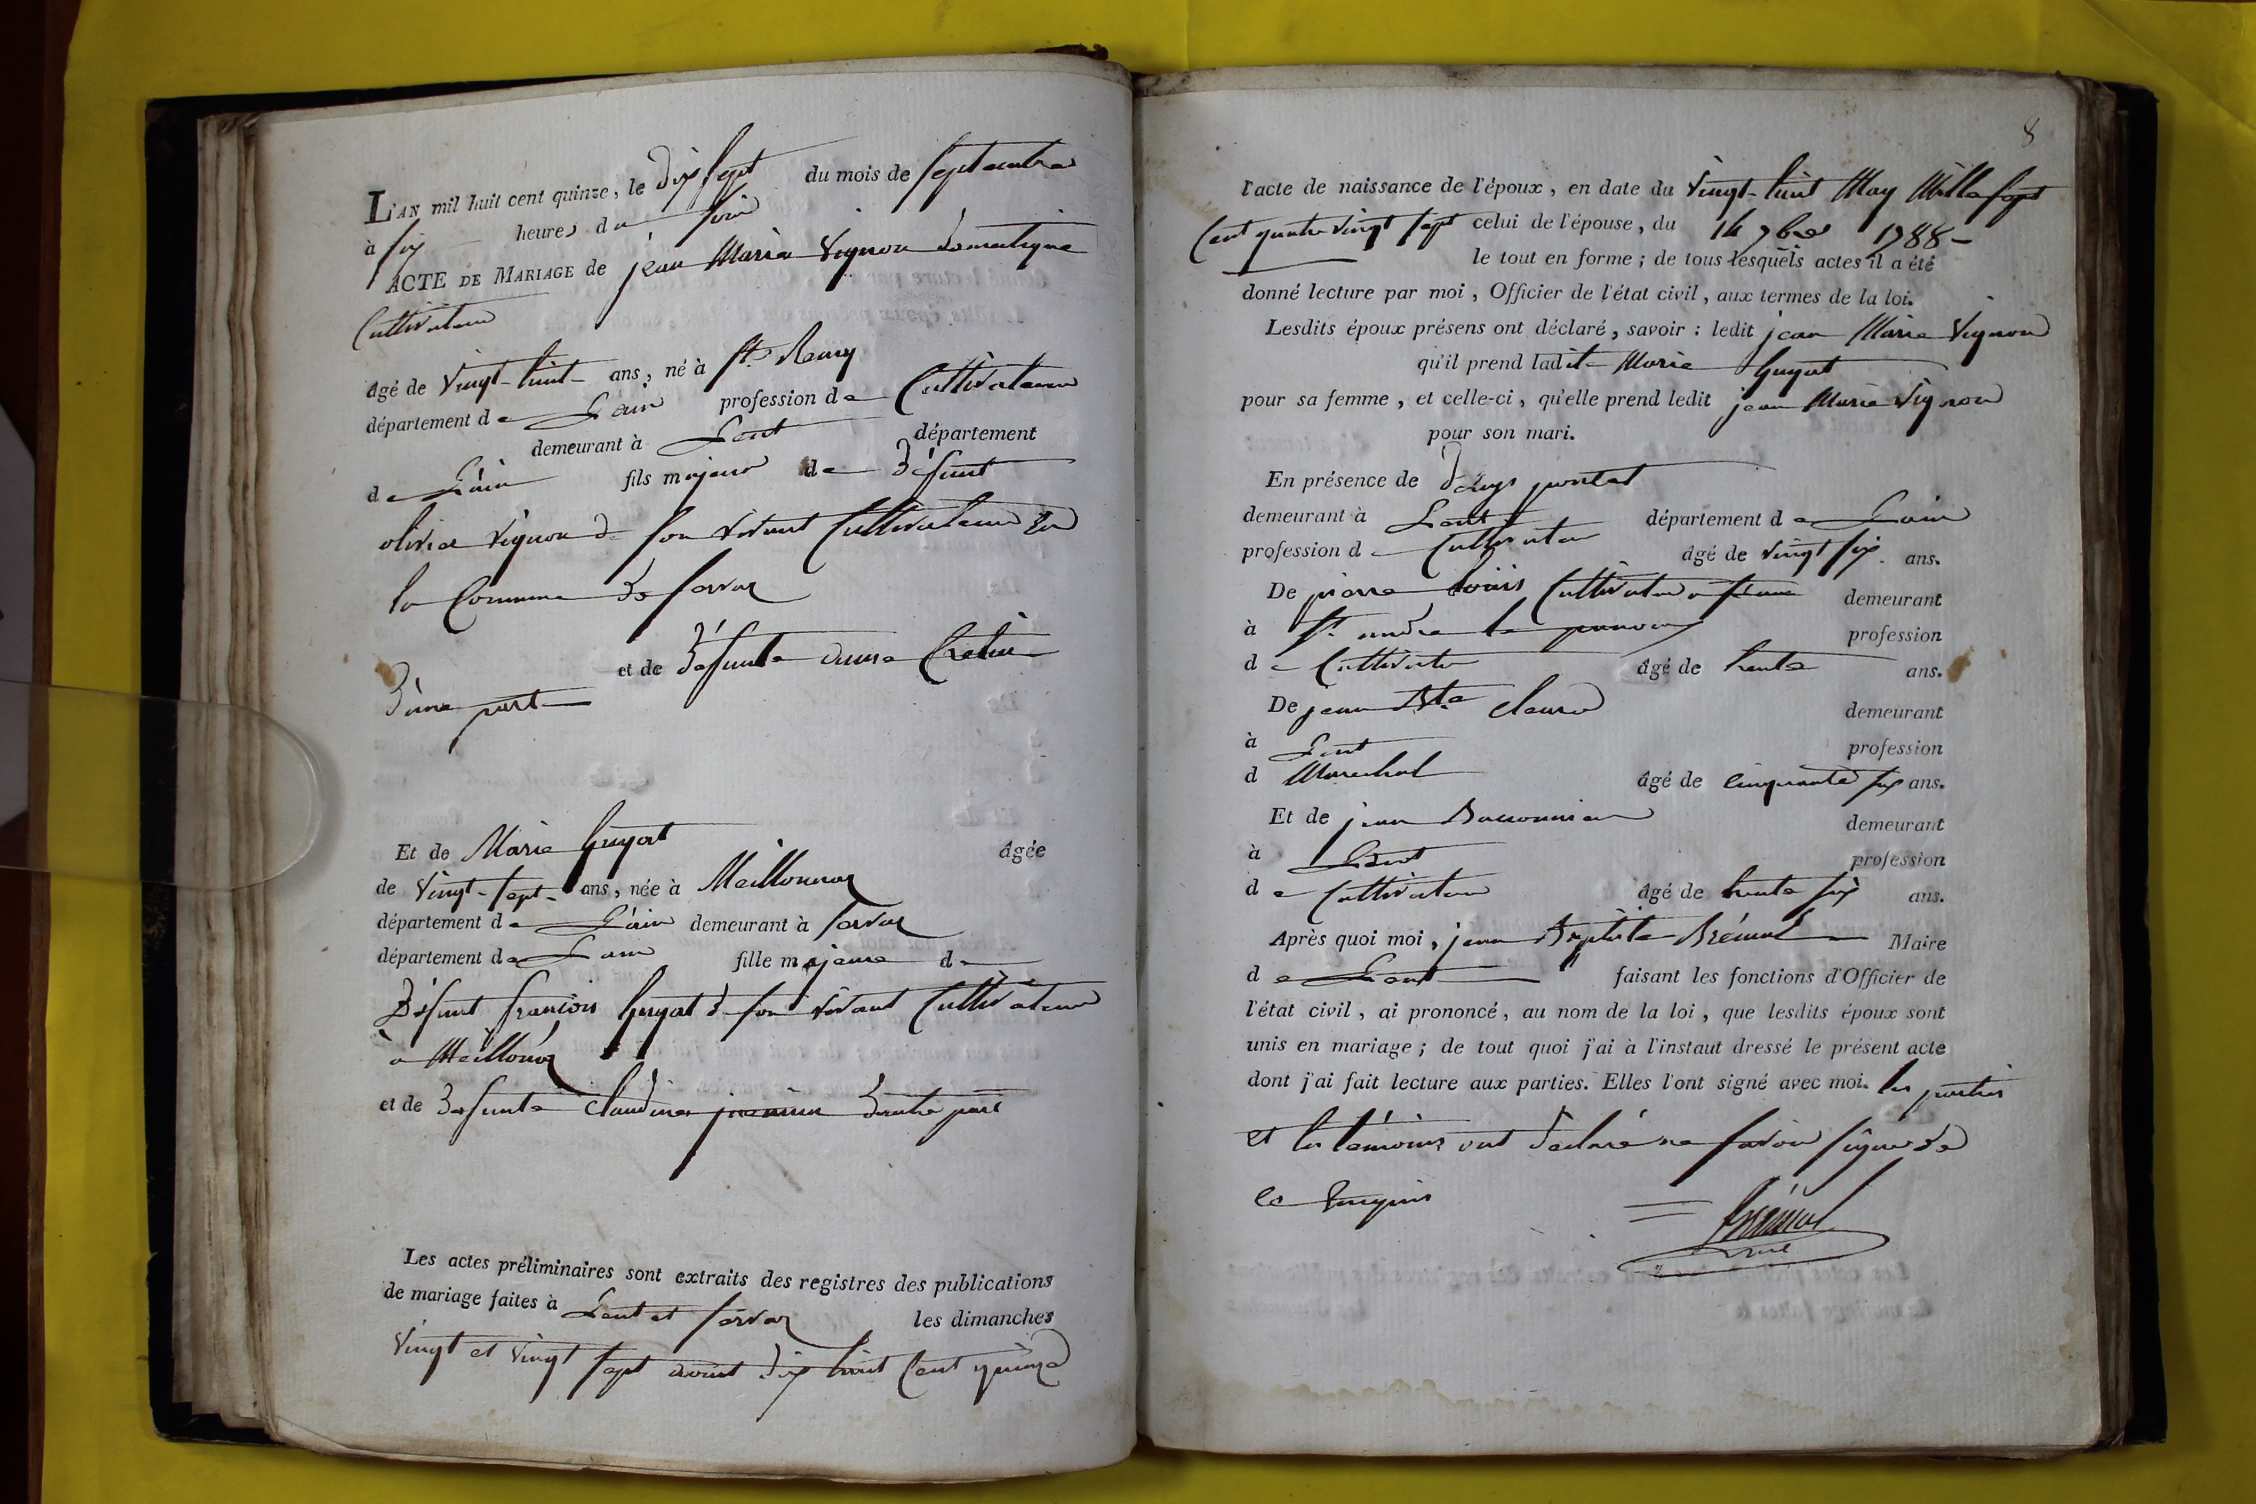 L'AN mil huit cent quinze, le dix sept du mois de septembre
à six heures du soir
ACTE DE MARIAGE de jean Marie Vignon domestique
Cultivateur
âgé de vingt-huit ans, né à St. Remy
département de Lain profession de Cultivateur
demeurant à Lent département
de L'ain fils majeur de Défunt
olivier vignon de son vivant Cultivateur en
la Commune de servas
et de Défunte anne Cretin
D'une part
Et de Marie Guyat âgée
de vingt-sept ans, née à Meillonnaz
département de L'ain demeurant à servas
département de Lain fille majeure de
Défunt françois Guyat de son vivant Cultivateur
à Meillonaz
et de Défunte Claudine Dautre part
Les actes préliminaires sont extraits des registres des publications
de mariage faites à Lent et servaz les dimanches
vingt et vingt sept aoust dix huit Cent quinze
8
l'acte de naissance de l'époux, en date du vingt-huit May Mille sept
Cent quatre vingt sept celui de l'épouse, du 14 7bre 1788 -
le tout en forme; de tous lesquels actes il a été
donné lecture par moi, Officier de l'état civil, aux termes de la loi.
Lesdits époux présens ont déclaré, savoir: ledit jean Marie Vignon
qu'il prend ladite Marie Guyat
pour sa femme, et celle-ci, qu'elle prend ledit jean Marie Vignon
pour son mari.
En présence de Denys
demeurant à Lent département de Lain
profession de Cultivateur âgé de vingt six ans.
De pierre Louis Cultivateur demeurant
à St. andré le panoux profession
de Cultivateur âgé de trente ans.
De jean Bte. demeurant
à Lent profession
d Marechal âgé de cinquante six ans.
Et de jean demeurant
à Lent profession
de Cultivateur âgé de trente six ans.
Après quoi moi, jean Baptiste Brémal Maire
de Lent faisant les fonctions d'Officier de
l'état civil, ai prononcé, au nom de la loi, que lesdits époux sont
unis en mariage; de tout quoi j'ai à l'instant dressé le présent acte
dont j'ai fait lecture aux parties. Elles l'ont signé avec moi. les parties
et les témoins ont déclaré ne savoir signer de
ce Enquis